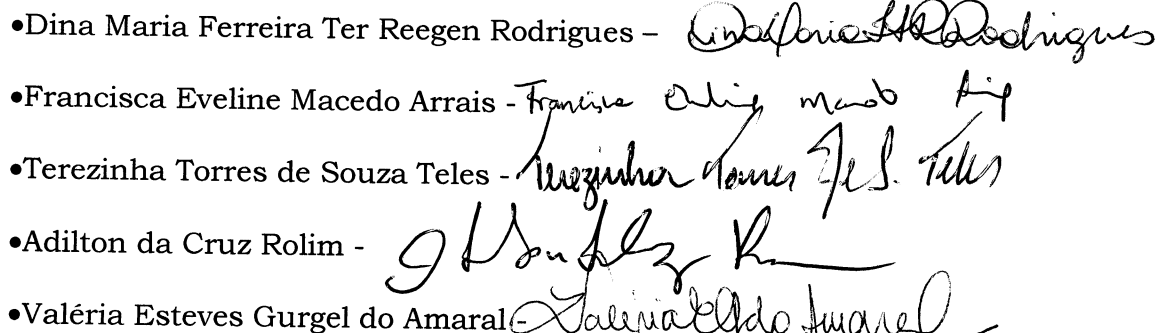 •Dina Maria Ferreira Ter Reegen Rodrigues – Dina Maria F T R Rodrigues
•Francisca Eveline Macedo Arrais - Francisca
•Terezinha Torres de Souza Teles - Terezinha Torres de S. Teles
•Adilton da Cruz Rolim -
•Valéria Esteves Gurgel do Amaral - Valéria E G do Amaral